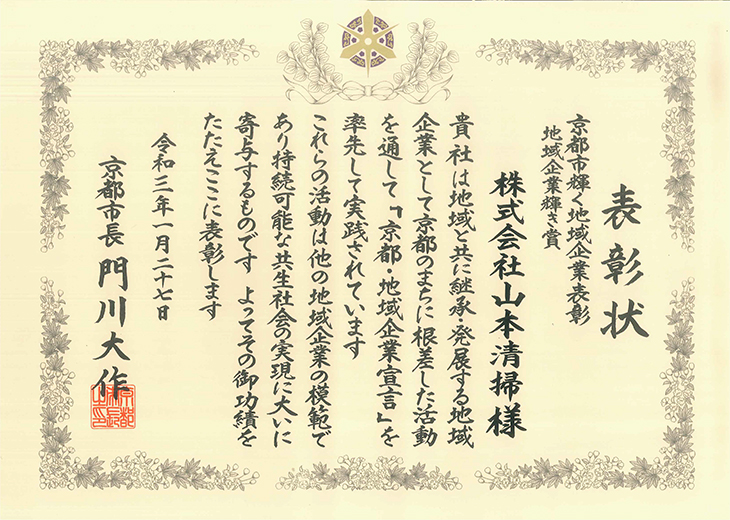 表彰状
京都市輝く地域企業表彰
地域企業輝き賞
株式会社山本清掃様
貴社は地域と共に継承・発展する地域
企業として京都のまちに根差した活動
を通して、「京都・地域企業宣言」を
率先して実践されています
これらの活動は他の地域企業の模範で
あり持続可能な共生社会の実現に大いに
寄与するものです よってその御功績を
たたえここに表彰します
令和三年一月二十七日
京都市長 門川大作
京都
市長
之印